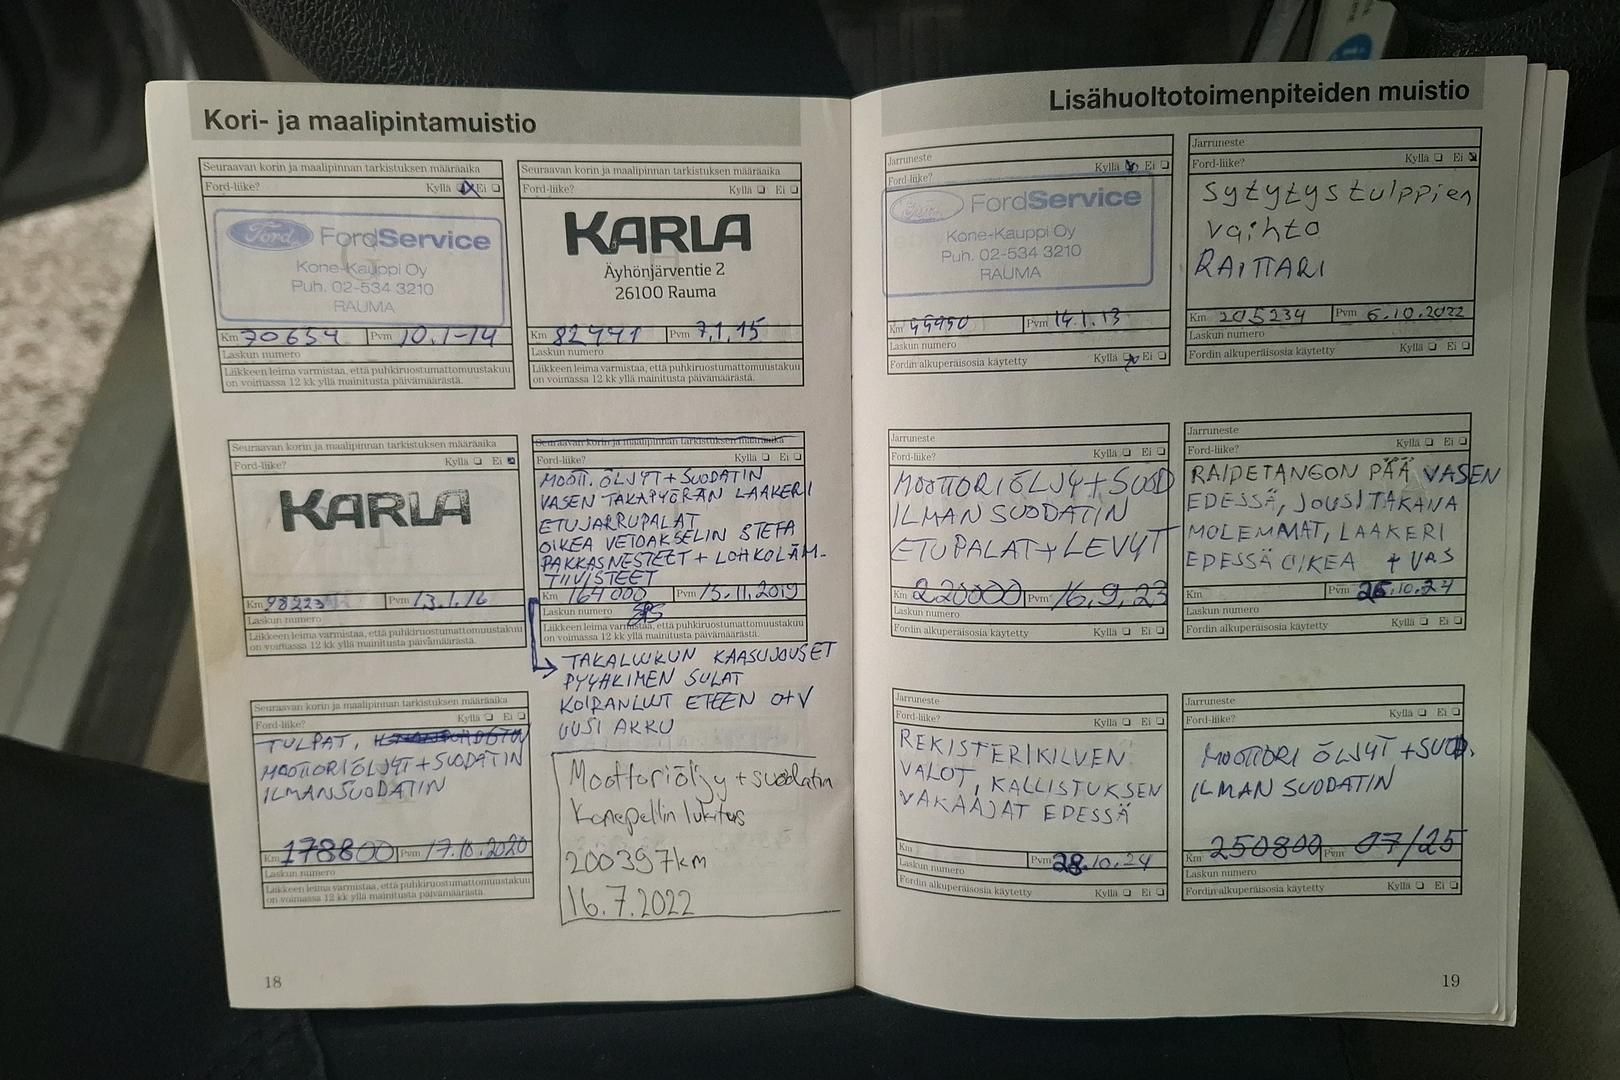 Kori- ja maalipintamuistio
Seuraavan korin ja maalipinnan tarkistuksen määräaika
Ford-liike? Kyllä Ei
Ford FordService
Kone-Kauppi Oy
Puh. 02-534 3210
RAUMA
Km 70654 Pvm 10.1-14
Laskun numero
Liikkeen leima varmistaa, että puhkiruostumattomuustakuu
on voimassa 12 kk yllä mainitusta päivämäärästä.
Seuraavan korin ja maalipinnan tarkistuksen määräaika
Ford-liike? Kyllä Ei
KARLA
Äyhönjärventie 2
26100 Rauma
Km 82441 Pvm 7.1.15
Laskun numero
Liikkeen leima varmistaa, että puhkiruostumattomuustakuu
on voimassa 12 kk yllä mainitusta päivämäärästä.
Seuraavan korin ja maalipinnan tarkistuksen määräaika
Ford-liike? Kyllä Ei
KARLA
Km 98223 Pvm 13.1.16
Laskun numero
Liikkeen leima varmistaa, että puhkiruostumattomuustakuu
on voimassa 12 kk yllä mainitusta päivämäärästä.
Seuraavan korin ja maalipinnan tarkistuksen määräaika
Ford-liike? Kyllä Ei
MOOTT. ÖLJYT + SUODATIN
VASEN TAKAPYÖRÄN LAAKERI
ETUJARRUPALAT
OIKEA VETOAKSELIN STEFA
PAKKASNESTEET + LOHKOLÄM.
TIIVISTEET
Km 164000 Pvm 15.11.2019
Laskun numero
Liikkeen leima varmistaa, että puhkiruostumattomuustakuu
on voimassa 12 kk yllä mainitusta päivämäärästä.
TAKALUUKUN KAASUJOUSET
PYYHKIMEN SULAT
KOIRANLUUT ETEEN O+V
UUSI AKKU
Seuraavan korin ja maalipinnan tarkistuksen määräaika
Ford-liike? Kyllä Ei
TULPAT,
MOOTTORIÖLJYT + SUODATIN
ILMANSUODATIN
Km 178800 Pvm 17.10.2020
Laskun numero
Liikkeen leima varmistaa, että puhkiruostumattomuustakuu
on voimassa 12 kk yllä mainitusta päivämäärästä.
Moottoriöljy + suodatin
Konepellin lukitus
200397km
16.7.2022
18
Lisähuoltotoimenpiteiden muistio
Jarruneste
Ford-liike? Kyllä Ei
Ford FordService
Kone-Kauppi Oy
Puh. 02-534 3210
RAUMA
Km Pvm 14.1.13
Laskun numero
Fordin alkuperäisosia käytetty Kyllä Ei
Jarruneste
Ford-liike? Kyllä Ei
Sytytystulppien
vaihto
RAITTARI
Km 205234 Pvm 6.10.2022
Laskun numero
Fordin alkuperäisosia käytetty Kyllä Ei
Jarruneste
Ford-liike? Kyllä Ei
MOOTTORIÖLJY + SUOD
ILMANSUODATIN
ETUPALAT + LEVYT
Km 220000 Pvm 16.9.23
Laskun numero
Fordin alkuperäisosia käytetty Kyllä Ei
Jarruneste
Ford-liike? Kyllä Ei
RAIDETANGON PÄÄ VASEN
EDESSÄ, JOUSI TAKANA
MOLEMMAT, LAAKERI
EDESSÄ OIKEA + VAS
Km Pvm 26.10.24
Laskun numero
Fordin alkuperäisosia käytetty Kyllä Ei
Jarruneste
Ford-liike? Kyllä Ei
REKISTERIKILVEN
VALOT, KALLISTUKSEN
VAKAAJAT EDESSÄ
Km Pvm 28.10.24
Laskun numero
Fordin alkuperäisosia käytetty Kyllä Ei
Jarruneste
Ford-liike? Kyllä Ei
MOOTTORI ÖLJYT + SUOD.
ILMAN SUODATIN
Km 250800 Pvm 07/25
Laskun numero
Fordin alkuperäisosia käytetty Kyllä Ei
19